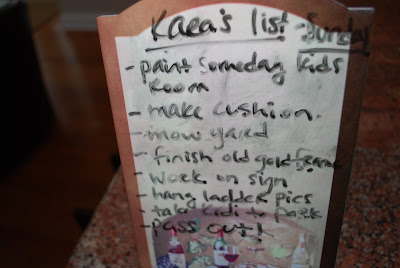 Kara's list - Sunday
- paint someday kids
room
- make cushion.
- mow yared
- finish old gold frame
- work on sign
- hang ladder pics
- take Kidi to park
- pass out!